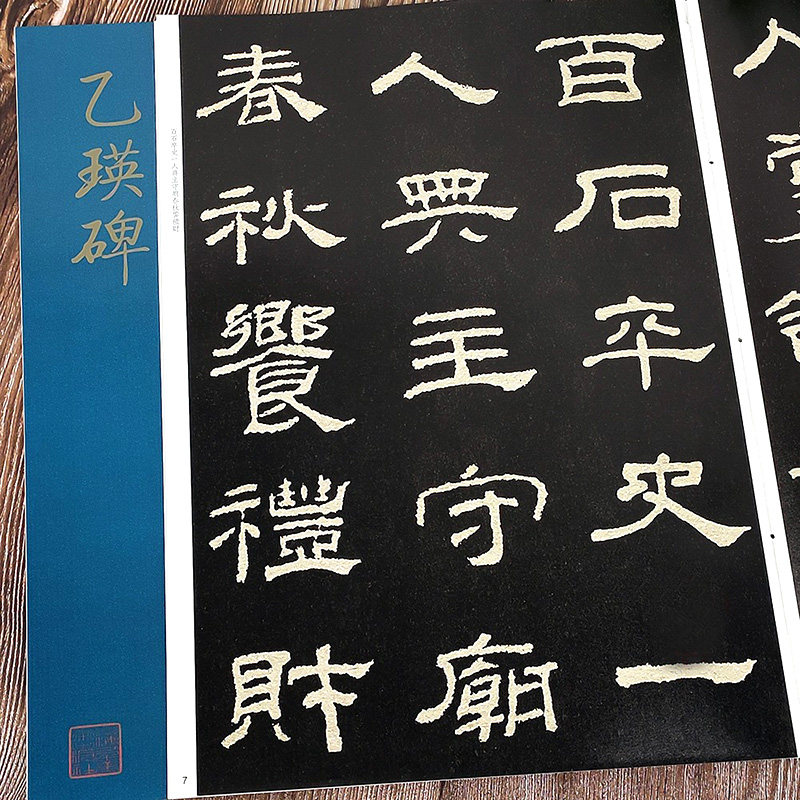 百石卒史一
人典主守廟
春秋饗禮財
百石卒史一人典主守廟春秋饗禮財
7
乙瑛碑